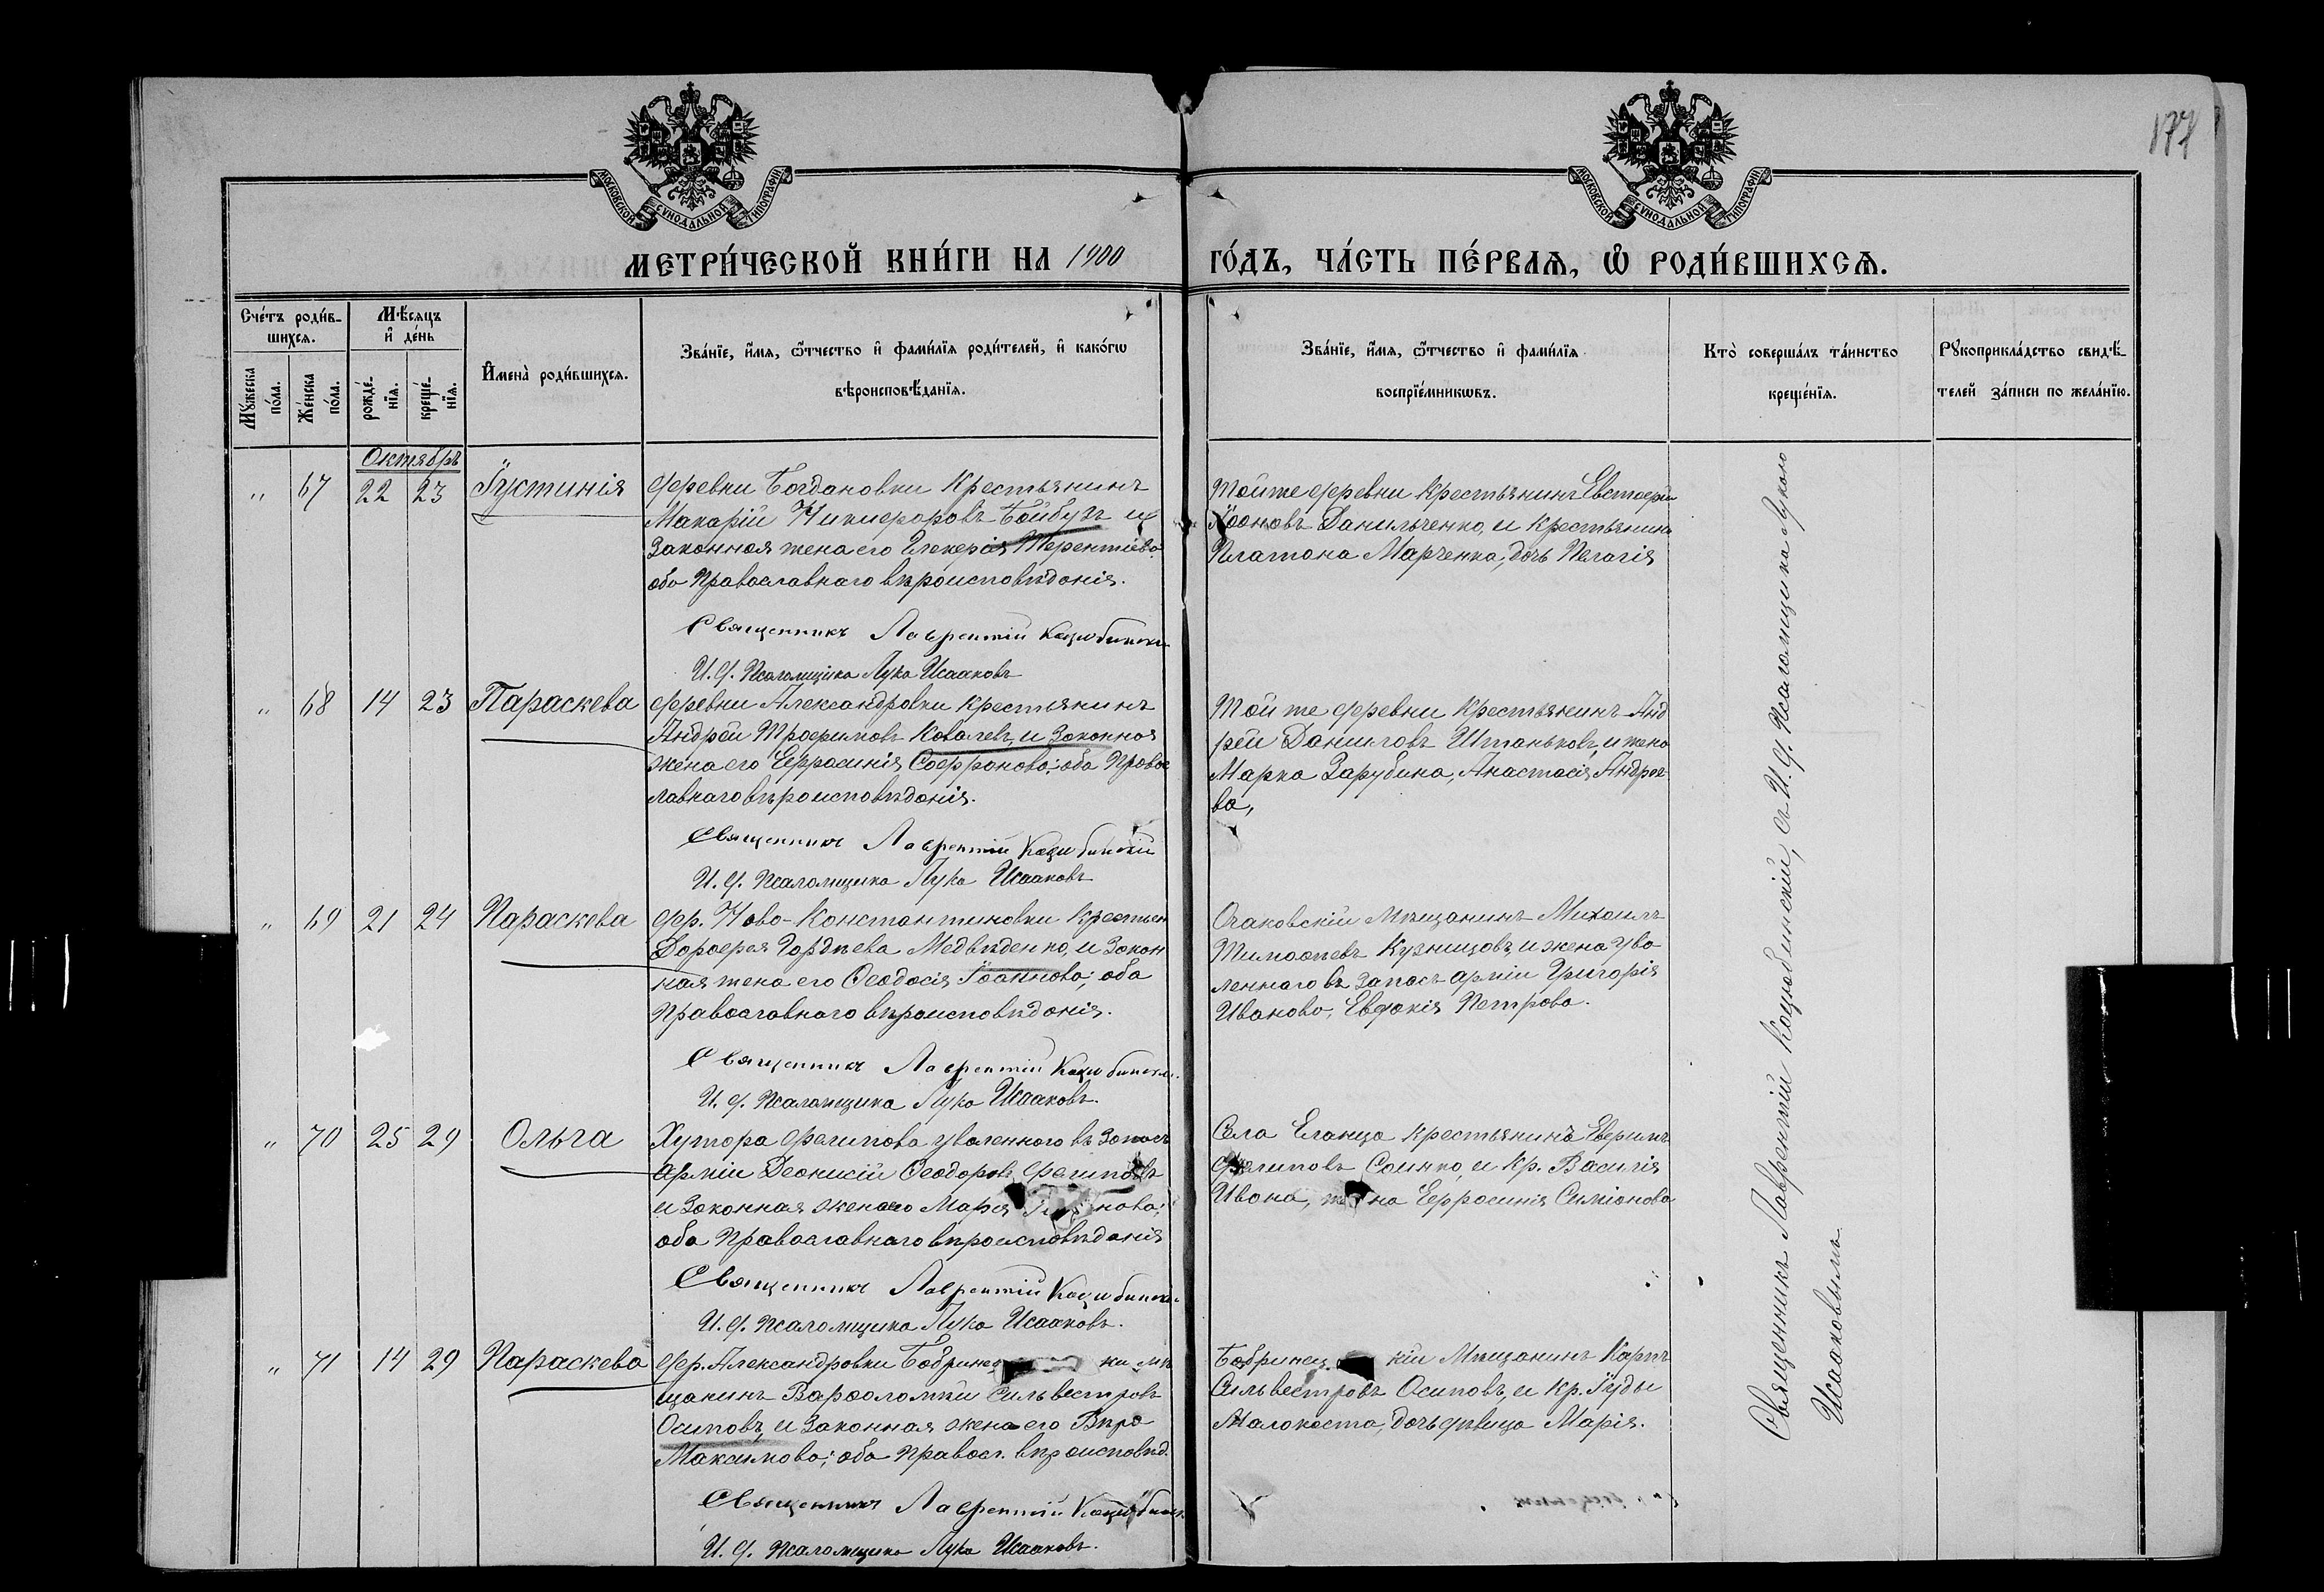 177
МОСКОВСКОЙ СѴНОДАЛЬНОЙ ТИПОГРАФІИ
МОСКОВСКОЙ СѴНОДАЛЬНОЙ ТИПОГРАФІИ
МЕТРИ́ЧЕСКОЙ КНИ́ГИ НА 1900 ГО́ДЪ, ЧА́СТЬ ПЕ́РВАѦ, Ѡ҆ РОДИ́ВШИХСѦ.
Сче́тъ роди́в-
шихсѧ.
Мѣ́сѧцъ
и҆ де́нь
Мꙋ́жеска
по́ла.
Же́нска
по́ла.
рожде́-
нїѧ.
креще́-
нїѧ.
И҆мена̀ роди́вшихсѧ.
Зва́нїе, и҆́мѧ, ѻ҆́тчество и҆ фами́лїѧ роди́телей, и҆ како́гѡ
вѣроисповѣ́данїѧ.
Зва́нїе, и҆́мѧ, ѻ҆́тчество и҆ фами́лїѧ
воспрїе́мникѡвъ.
Кто̀ соверша́лъ та́инство
креще́нїѧ.
Рꙋкоприкла́дство свидѣ́-
телей за́писи по жела́нїю.
Октябрь
" 67 22 23 Іустинія
деревни Богдановки крестьянинъ
Макарій Никифоровъ Бойбузъ и
законная жена его Гликерія Терентіева
оба Православнаго вѣроисповѣданія.
Священникъ Лаврентій Коцюбинскі
И. д. Псаломщика Лука Исааковъ
Той же деревни крестьянинъ Евстафій
Іоановъ Данильченко, и крестьянина
Платона Марченка, дочь Пелагія
" 68 14 23 Параскева
деревни Александровки крестьянинъ
Андрей Трофимовъ Ковалевъ, и законная
жена его Ефросинія Софронова; оба Правос
лавнаго вѣроисповѣданія.
Священникъ Лаврентій Коцюбинскій
И. д. Псаломщика Лука Исааковъ
Той же деревни крестьянинъ Анд
рей Даниловъ Штаньковъ, и жена
Марка Зарубина, Анастасія Андрее
ва,
" 69 21 24 Параскева
дер. Ново-Константиновки крестьян
Дорофея Гордѣева Медвѣденко, и закон
ная жена его Ѳеодосія Іоаннова; оба
Православнаго вѣроисповѣданія.
Священникъ Лаврентій Коцюбинскі
И. д. Псаломщика Лука Исааковъ.
Очаковскій мѣщанинъ Михаилъ
Тимоѳеевъ Кузнецовъ, и жена уво-
леннаго въ запасъ арміи Григорія
Иванова, Евдокія Петрова.
" 70 25 29 Ольга
Хутора Филипова уволенного въ запасъ
арміи Деонисій Ѳеодоровъ Филиповъ
и законная жена его Марія нова;
оба Православнаго вѣроисповѣданія
Священникъ Лаврентій Коцюбинскі
И. д. Псаломщика Лука Исааковъ.
Села Еланца крестьянинъ
Филиповъ и кр. Василія
Ивана, жена Ефросинія Симіонова
" 71 14 29 Параскева
дер. Александровки Бобринец кій мѣ
щанинъ Варѳоломѣй Сильвестровъ
Осиповъ, и законная жена его Вѣра
Максимова; оба правосл. вѣроисповѣд.
Священникъ Лаврентій Коцюбинск
И. д. Псаломщика Лука Исааковъ.
Бобринец кій Мѣщанинъ Карпъ
Сильвестровъ Осиповъ, и кр. Іуды
Малокоста, дочь дѣвица Марія.
Священникъ Лаврентій Коцюбинскій, съ И. д. Псаломщика Лукою
Исааковымъ.